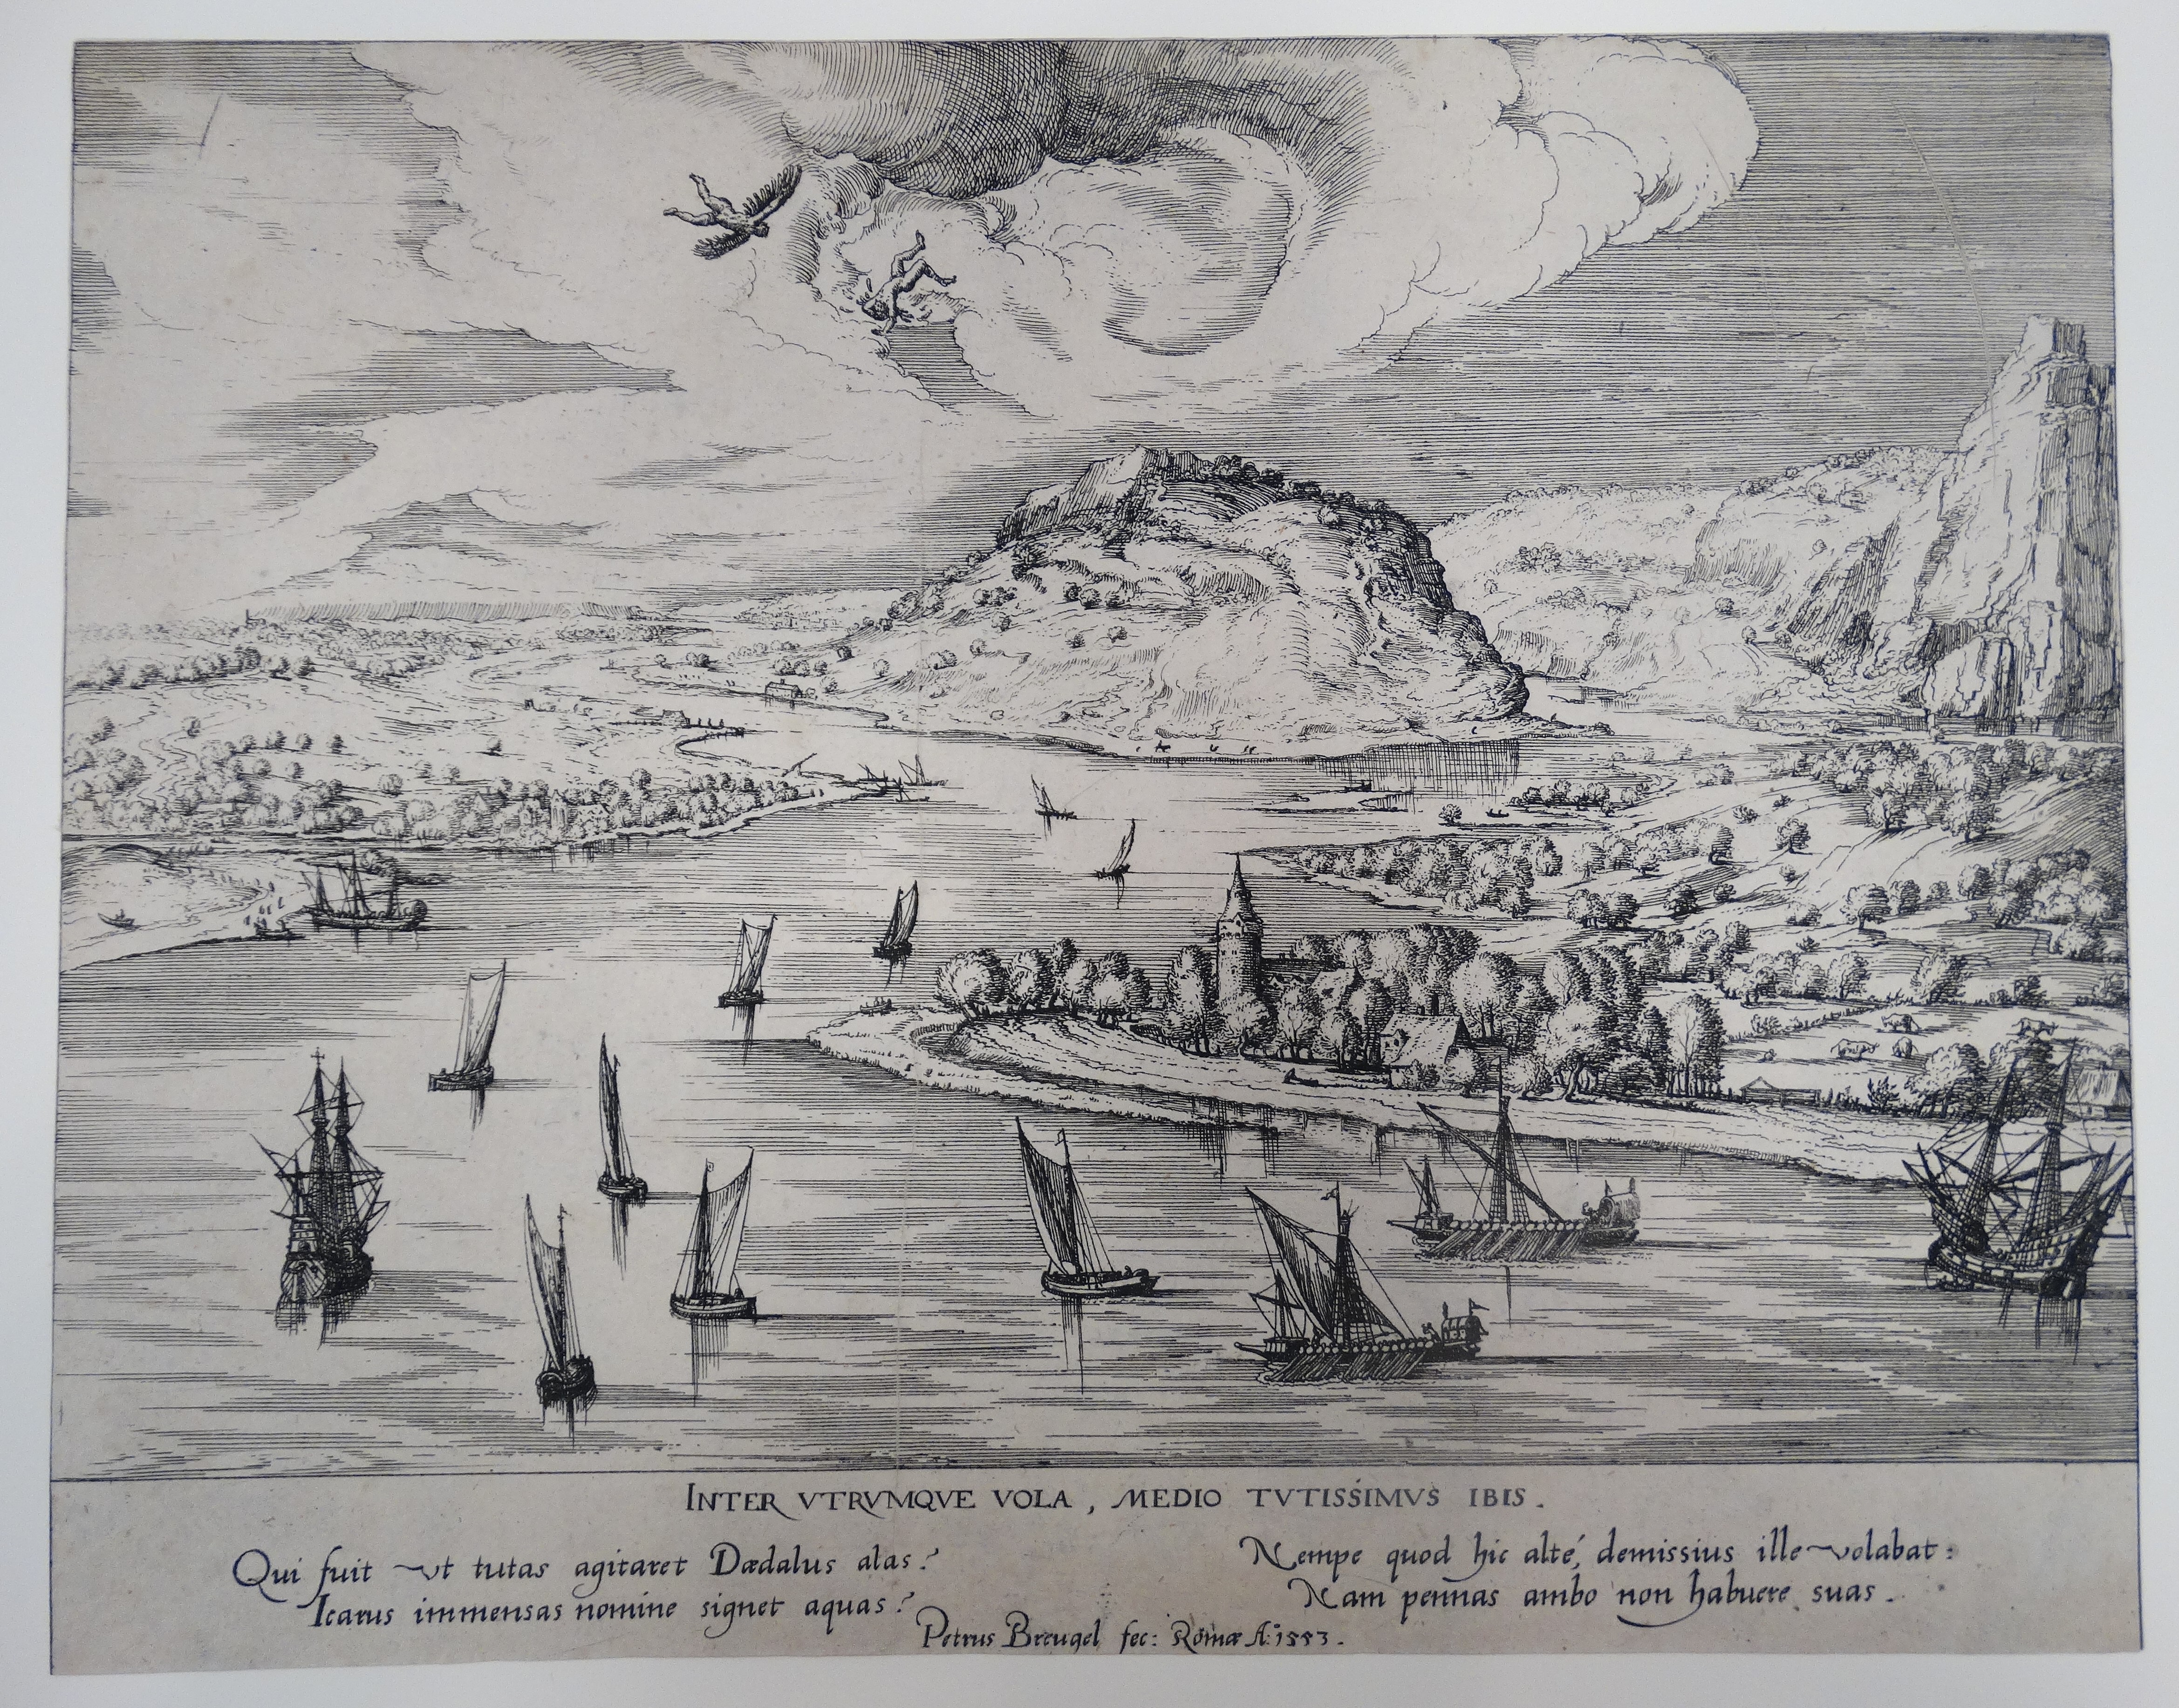 INTER VTRVMQVE VOLA, MEDIO TVTISSIMVS IBIS.
Qui fuit vt tutas agitaret Dædalus alas?
Icarus immensas nomine signet aquas?
Nempe quod hic alté, demissius ille volabat:
Nam pennas ambo non habuere suas.
Petrus Breugel fec: Romæ Aº: 1553.